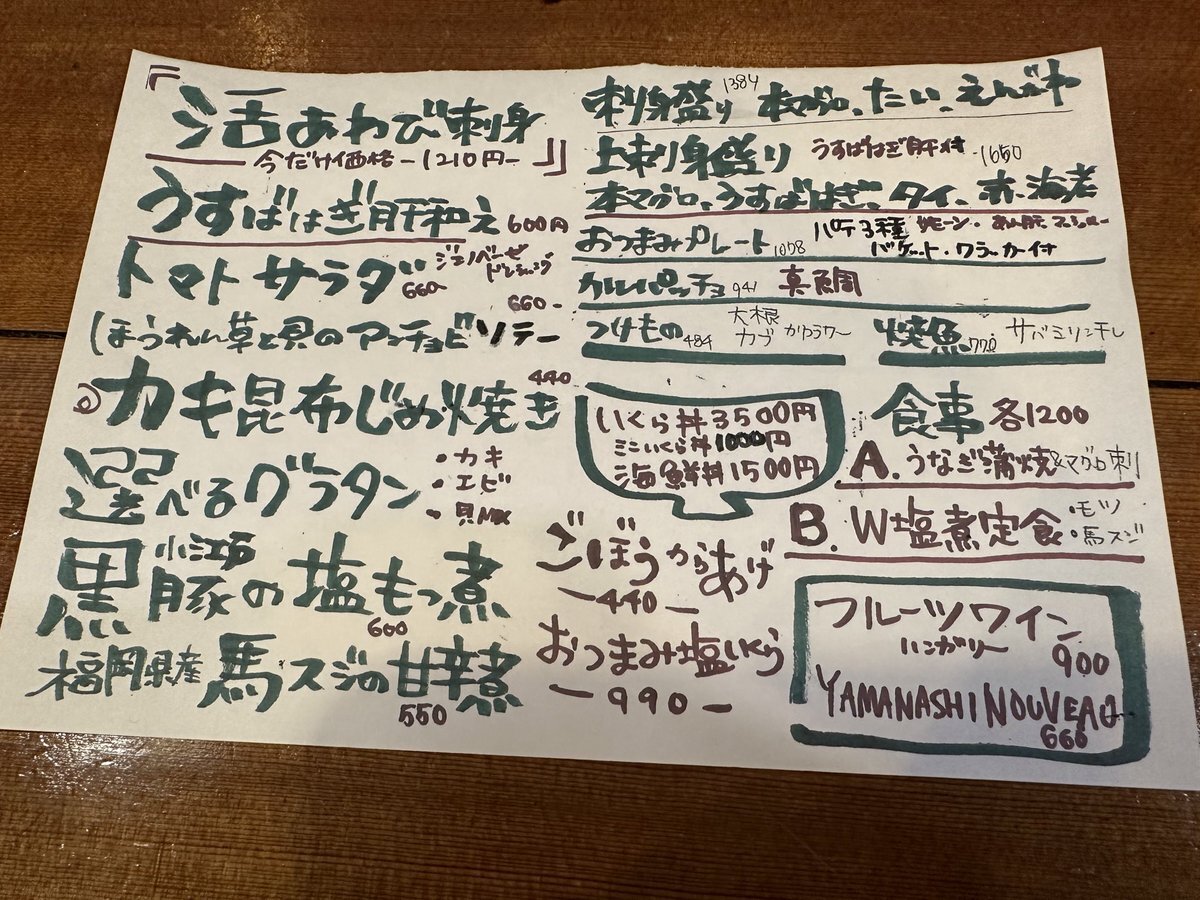 『活あわび刺身
今だけ価格-1210円-』
うすばはぎ肝和え 600円
トマトサラダ 660- ジェノベーゼ
ドレッシング
660-
ほうれん草と貝のアンチョビソテー
◎カキ昆布じめ焼き 440
選べるグラタン ・カキ
・エビ
・貝MIX
黒小江戸豚の塩もつ煮
600
福岡県産 馬スジの甘辛煮
550
刺身盛り 1384 本マグロ、たい、えんがわ
上刺身盛り うすばはぎ肝付 -1650
本マグロ、うすばはぎ、タイ、赤海老
おつまみプレート 1078 パテ3種
バゲット・クラッカー付
カルパッチョ 941 真鯛
つけもの 484 大根
カブ
焼魚 770 サバミリン干し
いくら丼3500円
ミニいくら丼1000円
海鮮丼1500円
食事 各1200
A. うなぎ蒲焼&マグロ刺
B. W塩煮定食 ・モツ
・馬スジ
ごぼうからあげ
-440-
おつまみ塩いくら
-990-
フルーツワイン
ハンガリー 900
YAMANASHI NOUVEAU
660